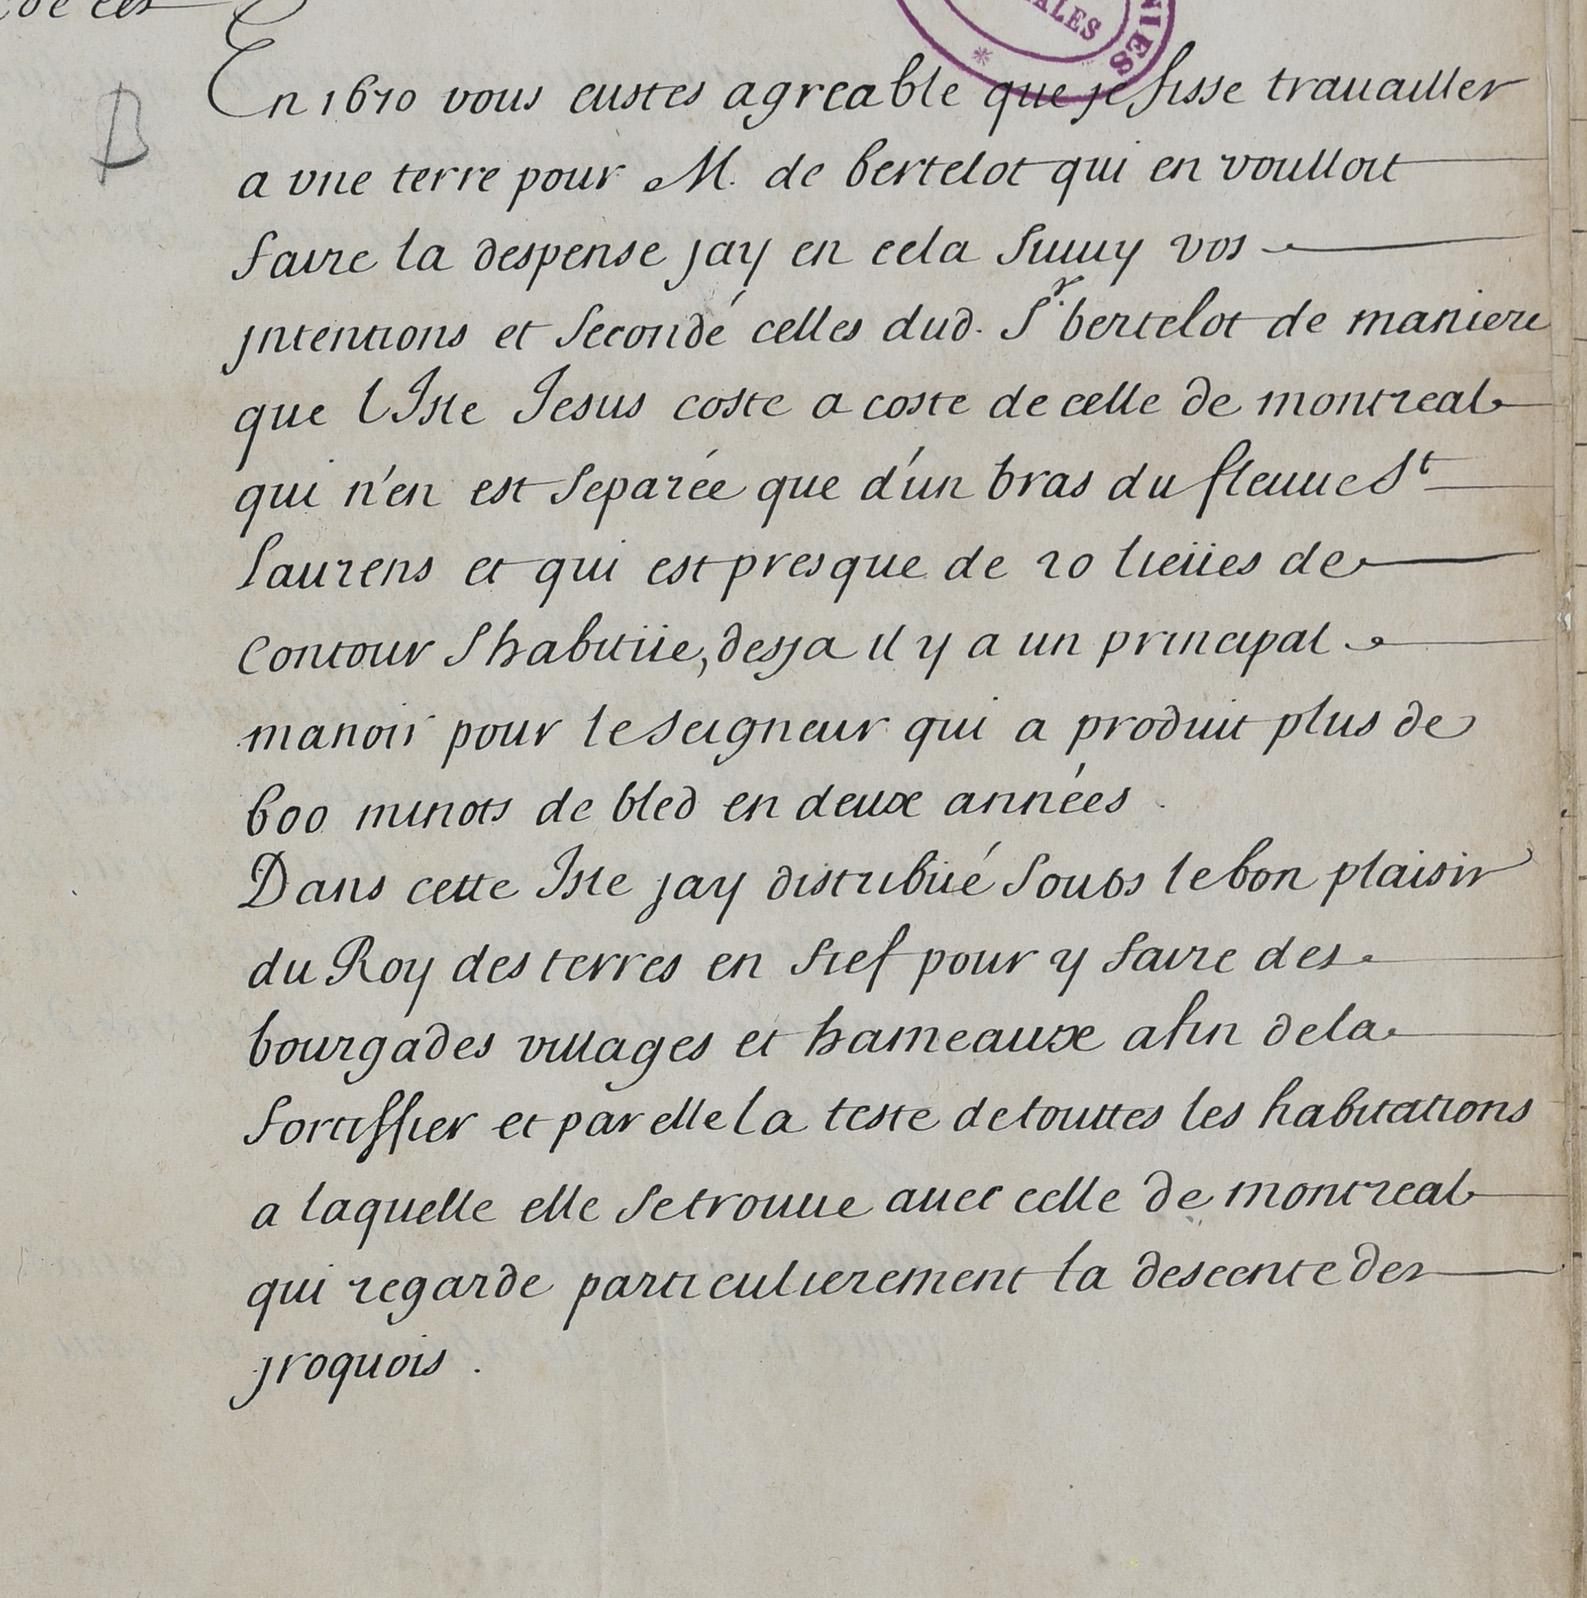 En 1670 vous eustes agreable que je fisse trauailler
a vne terre pour M. de bertelot qui en voulloit
faire la despense jay en cela suiuy vos
jntentions et secondé celles dud. Sr. bertelot de maniere
que l'Isle Jesus coste a coste de celle de montreal
qui n'en est separée que d'un bras du fleuue St
Laurens et qui est presque de 20 lieües de
contour shabitüe, desja il y a un principal
manoir pour le seigneur qui a produit plus de
600 minots de bled en deux années.
Dans cette Isle jay distribüé soubs le bon plaisir
du Roy des terres en fief pour y faire des
bourgades villages et hameaux afin de la
fortiffier et par elle la teste de touttes les habitations
a laquelle elle se trouue auec celle de montreal
qui regarde particulierement la descente des
jroquois.
B